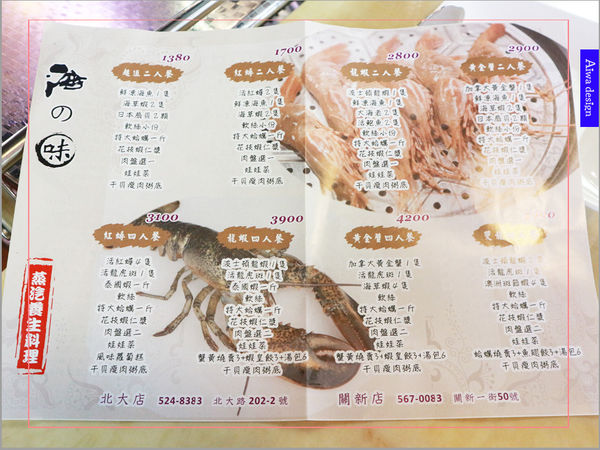 海の味
蒸汽養生料理
1380
超值二人餐
鮮凍海魚1隻
海草蝦2隻
日本扇貝2顆
軟絲小份
特大蛤蠣一斤
花枝蝦仁漿
肉盤選一
娃娃菜
干貝瘦肉粥底
1700
紅蟳二人餐
活紅蟳2隻
鮮凍海魚1隻
海草蝦2隻
軟絲小份
特大蛤蠣一斤
花枝蝦仁漿
肉盤選一
娃娃菜
干貝瘦肉粥底
2800
龍蝦二人餐
波士頓龍蝦1隻
鮮凍海魚1隻
大海老2隻
活鮑魚2隻
軟絲小份
特大蛤蠣一斤
花枝蝦仁漿
肉盤選一
娃娃菜
干貝瘦肉粥底
2900
黃金蟹二人餐
加拿大黃金蟹1隻
鮮凍海魚1隻
海草蝦2隻
日本扇貝2顆
軟絲小份
特大蛤蠣一斤
花枝蝦仁漿
肉盤選一
娃娃菜
干貝瘦肉粥底
3100
紅蟳四人餐
活紅蟳4隻
活龍虎斑1隻
泰國蝦一斤
軟絲
特大蛤蠣一斤
花枝蝦仁漿
肉盤選二
娃娃菜
風味蘿蔔糕
干貝瘦肉粥底
3900
龍蝦四人餐
波士頓龍蝦1隻
活龍虎斑1隻
泰國蝦一斤
軟絲
特大蛤蠣一斤
花枝蝦仁漿
肉盤選二
娃娃菜
蟹黃燒賣3+蝦皇餃3+湯包6
干貝瘦肉粥底
4200
黃金蟹四人餐
加拿大黃金蟹1隻
活龍虎斑1隻
海草蝦4隻
軟絲
特大蛤蠣一斤
花枝蝦仁漿
肉盤選二
娃娃菜
蟹黃燒賣3+蝦皇餃3+湯包6
干貝瘦肉粥底
0
波士頓龍蝦1隻
活龍虎斑1隻
澳洲斑節蝦4隻
軟絲
特大蛤蠣一斤
花枝蝦仁漿
肉盤選二
娃娃菜
蛤蠣燒賣3+魚翅餃3+湯包6
干貝瘦肉粥底
北大店 524-8383 北大路202-2號
關新店 567-0083 關新一街50號
Aiwa design